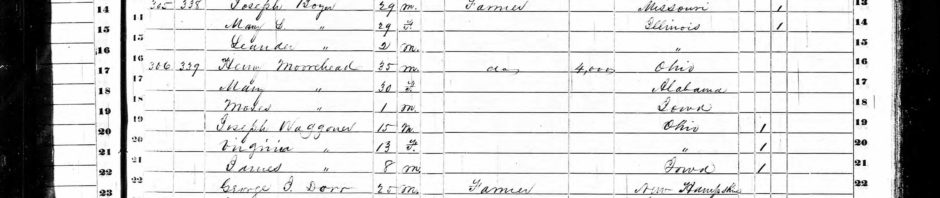 14 305 338 Joseph Boyer 29 m. Farmer Missouri 1 13
15 14 Mary E. " 29 F. Illinois 1 14
16 15 Leander " 2 m. " 15
17 306 339 16 Henry Moorehead 35 m. do 4,000 Ohio 16
18 17 Mary " 30 F. Alabama 17
19 18 Moses " 1 m. Iowa 18
20 19 Joseph Waggoner 15 m. Ohio 1 19
21 20 Virginia " 13 F. " 1 20
22 21 James " 8 m. Iowa 1 21
23 22 George Dorr 25 m. Farmer New Hampshire 22